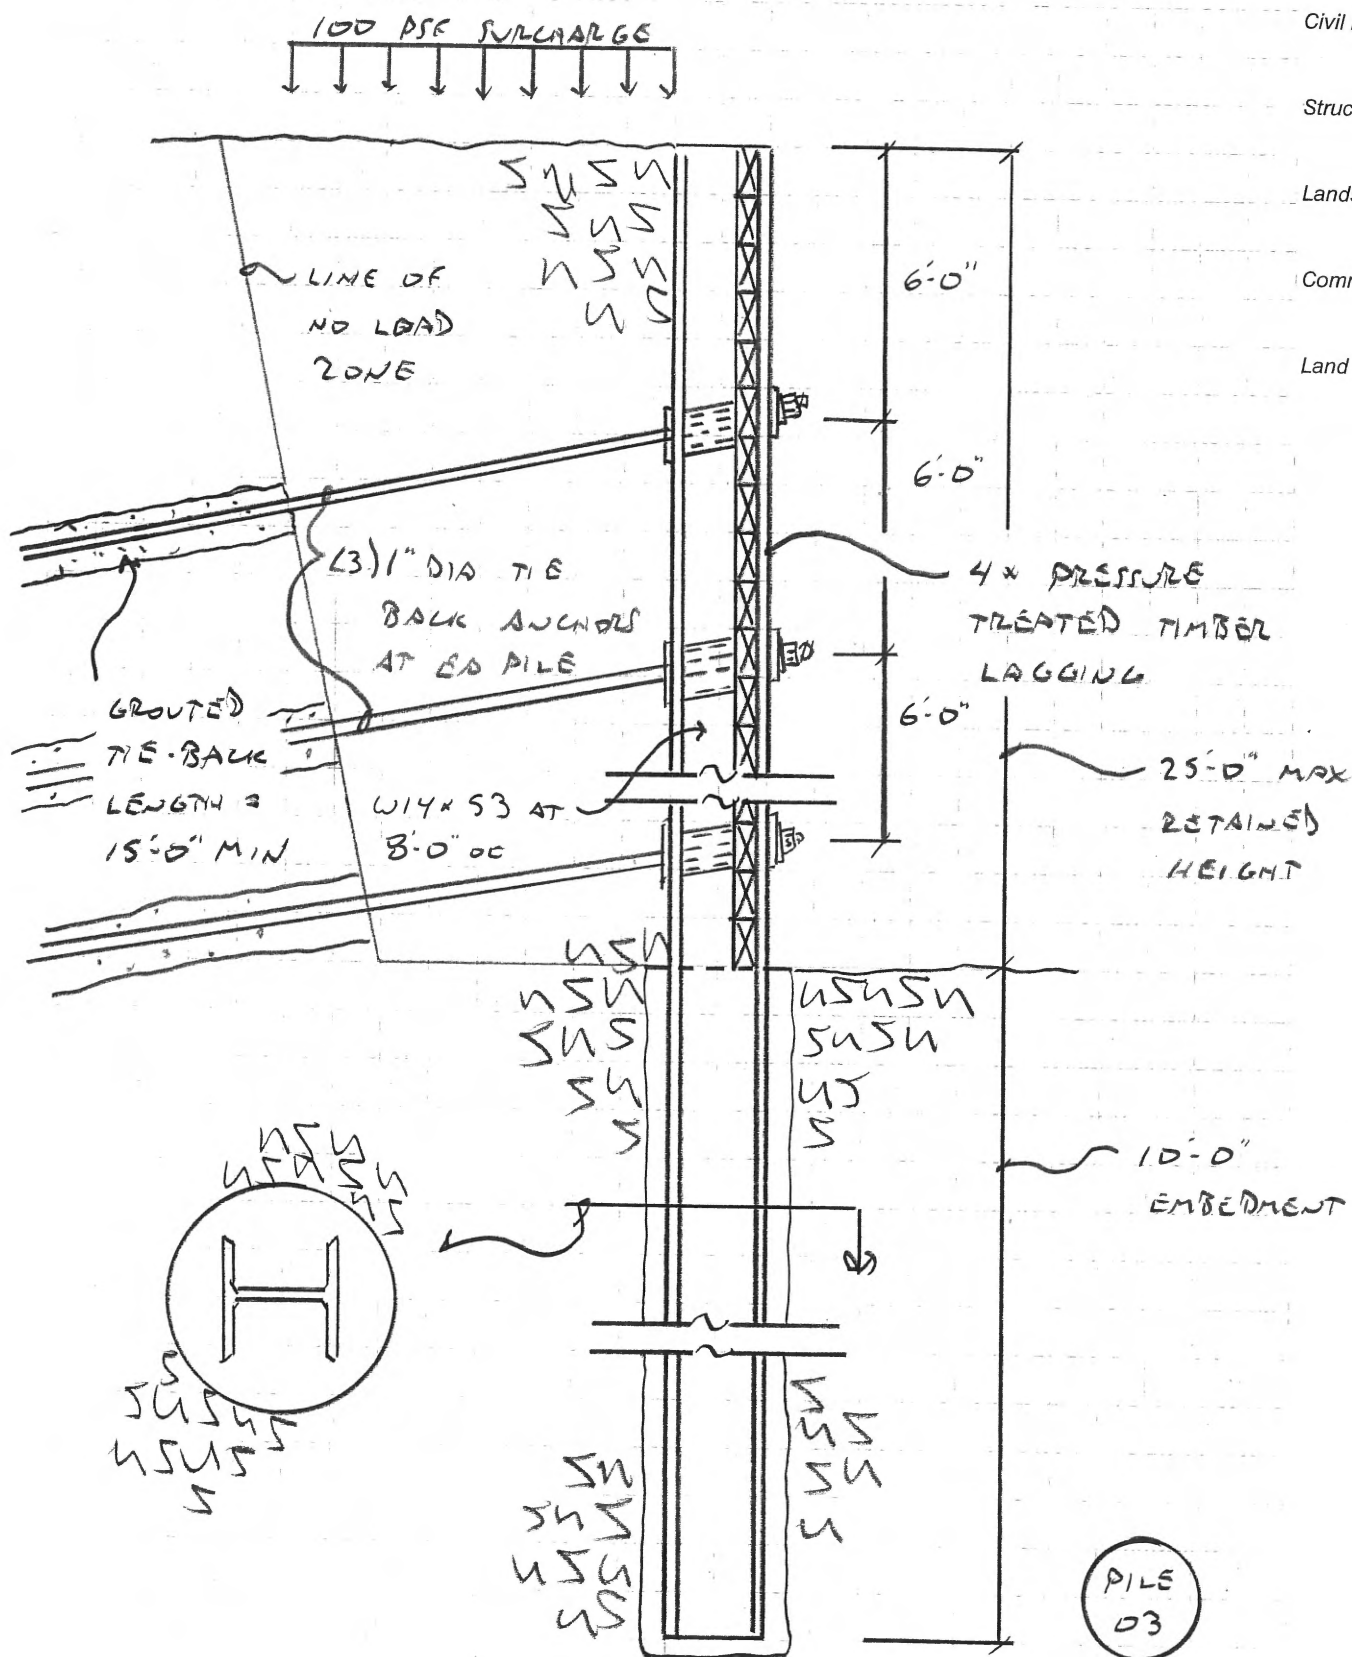 100 PSF SURCHARGE
Civil
Struc
Lands
Comm
Land
LINE OF
NO LOAD
ZONE
6'-0"
6'-0"
(3) 1" DIA TIE
BACK ANCHORS
AT EA PILE
4x PRESSURE
TREATED TIMBER
LAGGING
GROUTED
TIE-BACK
LENGTH =
15'-0" MIN
W14x53 AT
8'-0" OC
6'-0"
25'-0" MAX
RETAINED
HEIGHT
10'-0"
EMBEDMENT
PILE
03